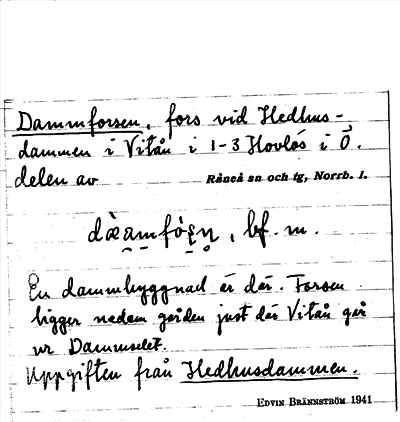 Dammforsen, fors vid Hedhus-
dammen i Vitån i 1-3 Hovlös i Ö.
delen av Råneå sn och tg, Norrb. l.
dàamfòṣn̥, bf. m.
En dammbyggnad är där. Forsen
ligger nedom gården just där Vitån går
ur Dammselet.
Uppgiften från Hedhusdammen.
EDVIN BRÄNNSTRÖM 1941